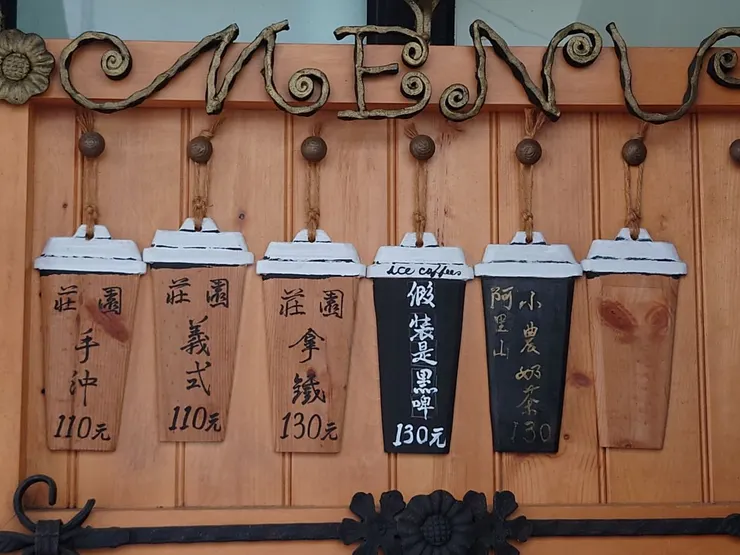 MENU
莊園
手沖
110元
莊園
義式
110元
莊園
拿鐵
130元
ice coffees
假裝是黑啤
130元
阿里山
小農奶茶
130